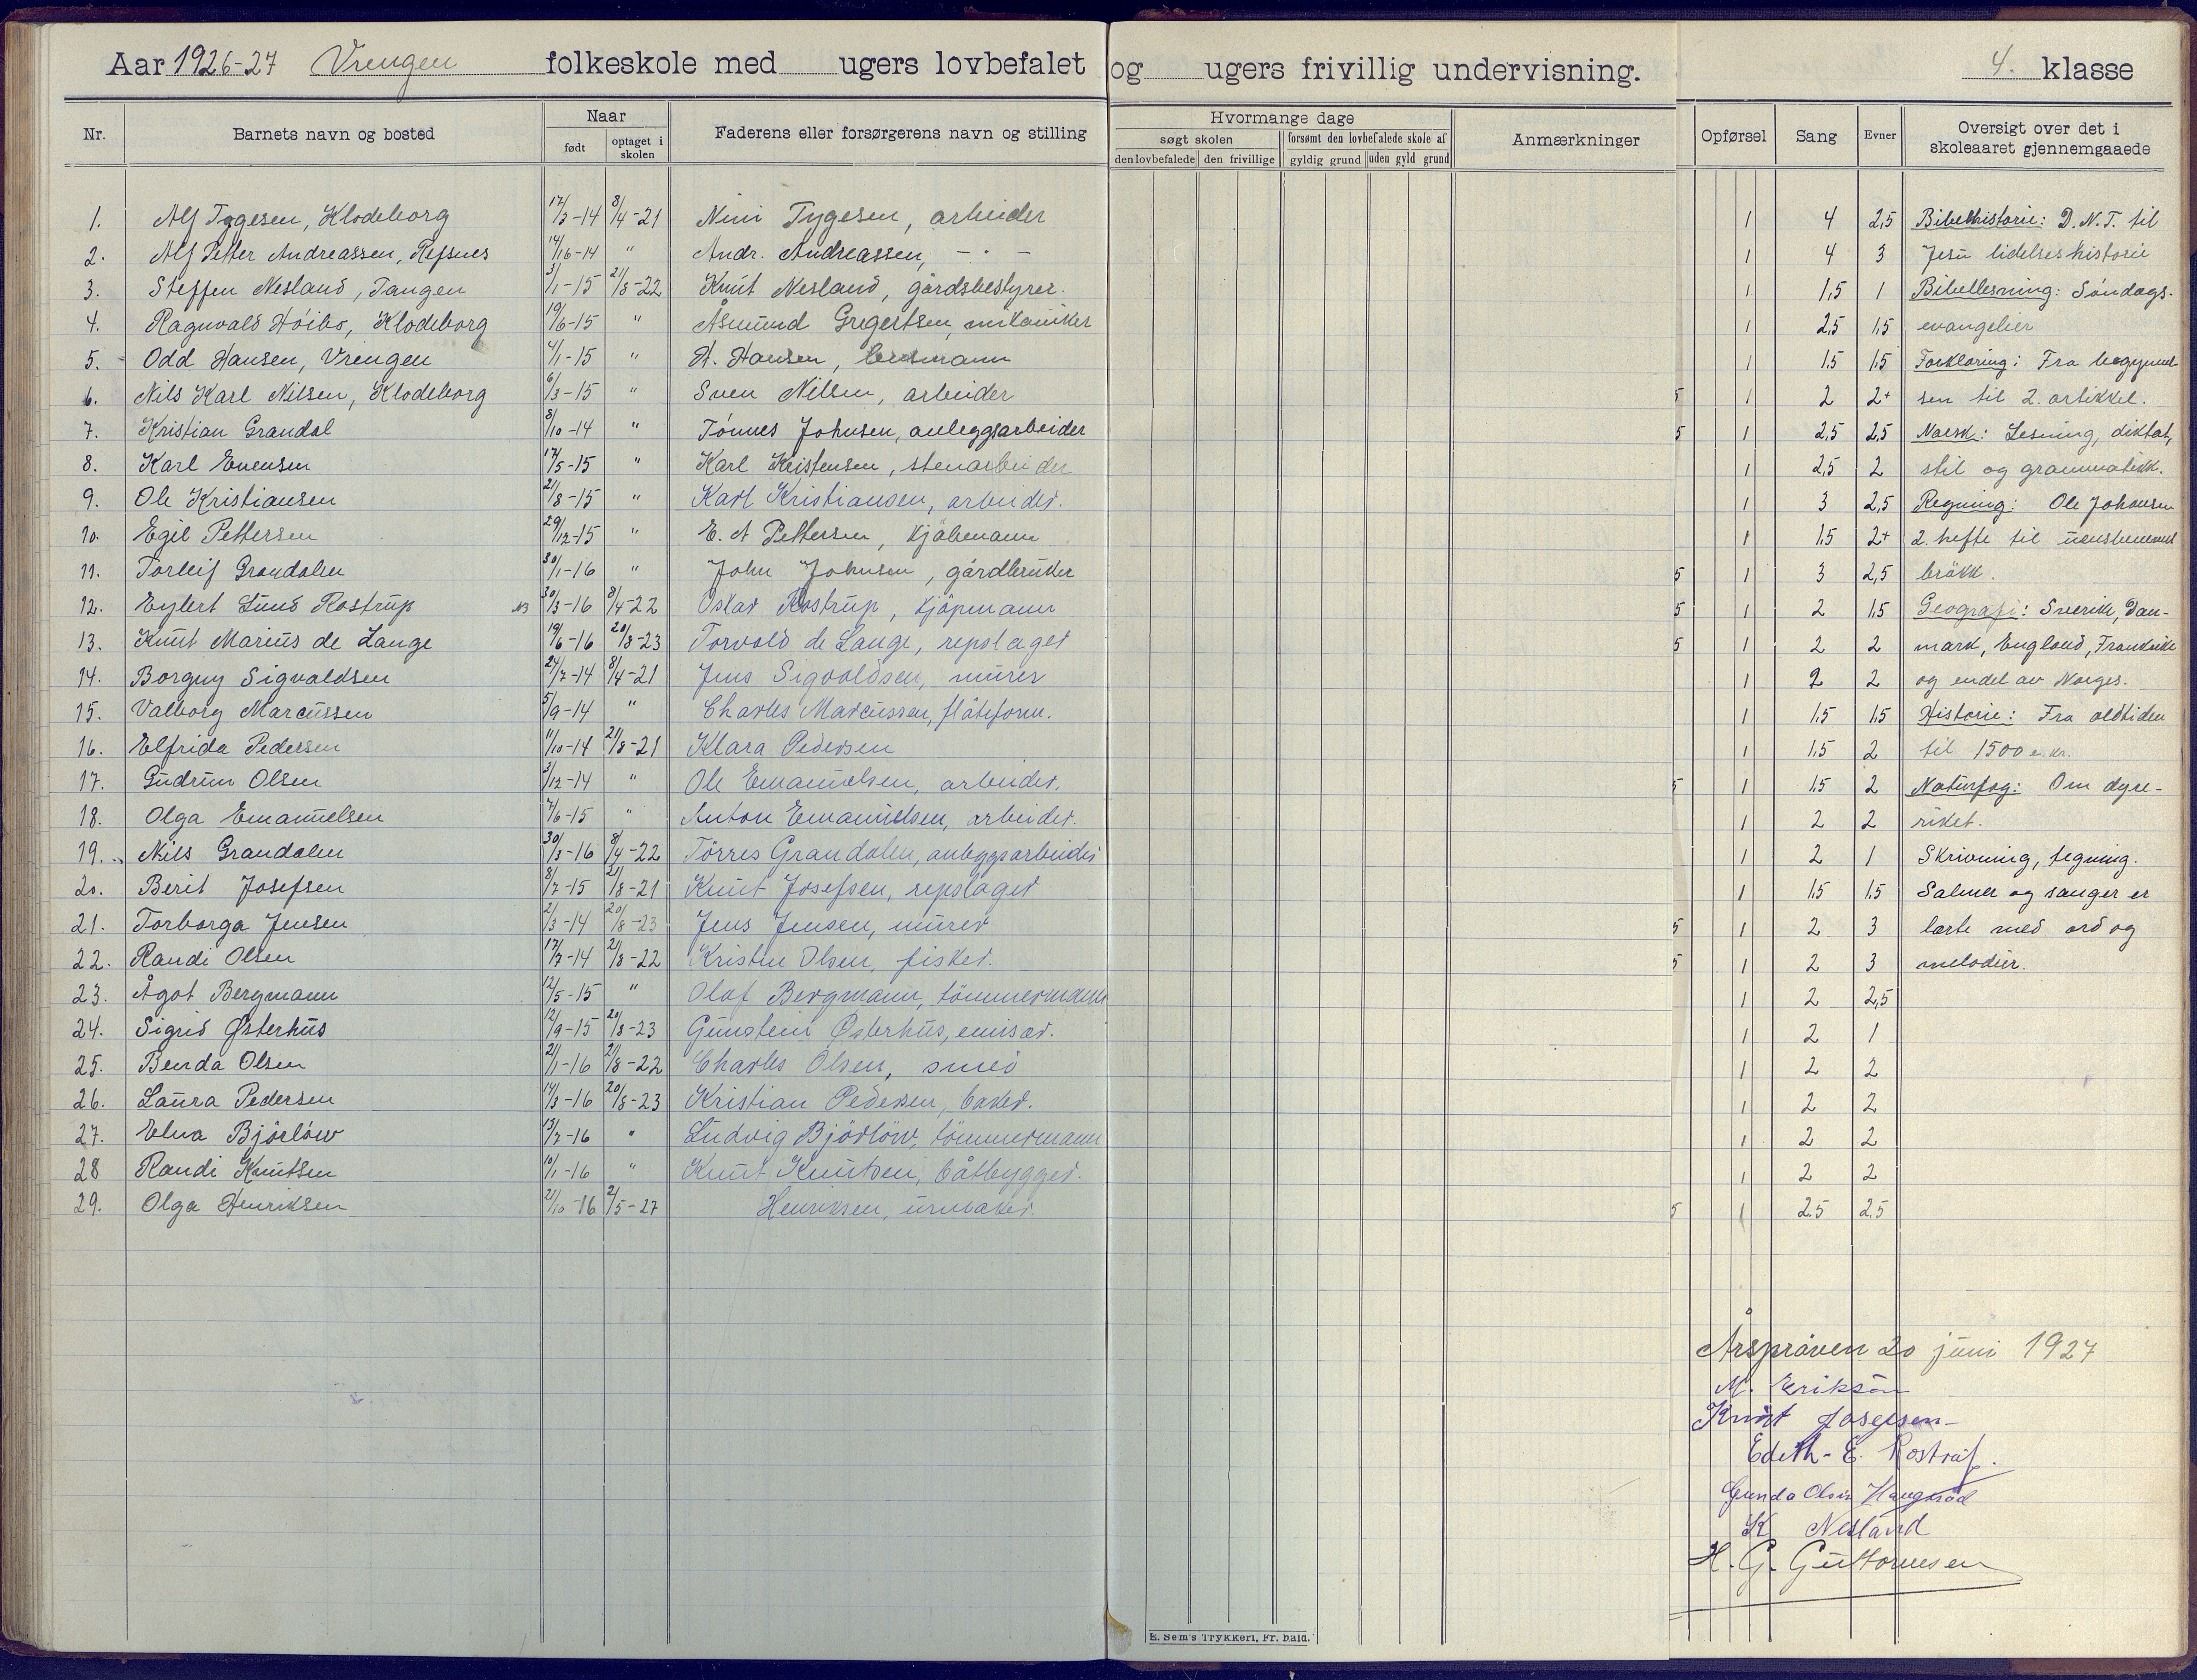 Aar 1926-27 Vrengen folkeskole med ugers lovbefalet og ugers frivillig undervisning. 4. klasse
Nr. Barnets navn og bosted Naar født optaget i skolen Faderens eller forsørgerens navn og stilling Hvormange dage søgt skolen den lovbefalede den frivillige forsømt den lovbefalede skole af gyldig grund uden gyld grund Anmærkninger Opførsel Sang Evner Oversigt over det i skoleaaret gjennemgaaede
1. Alf Tygesen, Klodeborg 17/3-14 8/4-21 Nini Tygesen, arbeider 1 4 2,5 Bibelhistorie: D. N. T. til
2. Alf Petter Andreassen, Refsnes 14/16-14 " Andr. Andreassen, - " - 1 4 3 Jesu lidelseshistorie
3. Steffen Nesland, Tangen 3/1-15 21/8-22 Knut Nesland, gårdsbestyrer. 1 1,5 1 Bibellesning: Søndags-
4. Ragnvald Høibo, Klodeborg 19/6-15 " Åsmund Gregertsen, mekaniker 1 2,5 1,5 evangelier
5. Odd Hansen, Vrengen 4/1-15 " H. Hansen, lensmann 1 1,5 1,5 Forklaring: Fra begynnel-
6. Nils Karl Nilsen, Klodeborg 6/3-15 " Sven Nilsen, arbeider 5 1 2 2+ sen til 2. artikkel.
7. Kristian Grandal 8/10-14 " Tønnes Johnsen, anleggsarbeider 5 1 2,5 2,5 Norsk: Lesning, diktat,
8. Karl Evensen 17/5-15 " Karl Kristensen, stenarbeider 1 2,5 2 stil og grammatikk.
9. Ole Kristiansen 21/8-15 " Karl Kristiansen, arbeider. 1 3 2,5 Regning: Ole Johansen
10. Egil Pettersen 29/12-15 " E. A Pettersen, kjøbmann 1 1,5 2+ 2. hefte til uensbenevnt
11. Torleif Grandalen 30/1-16 " John Johnsen, gårdbruker 5 1 3 2,5 brøkk.
12. Eylert Lund Rostrup 30/3-16 8/4-22 Oskar Rostrup, kjøpmann 5 1 2 1,5 Geografi: Sverike, Dan-
13. Knut Marius de Lange 19/6-16 20/8-23 Torvald de Lange, repslager 5 1 2 2 mark, England, Frankrike
14. Borgny Sigvaldsen 24/7-14 8/4-21 Jens Sigvaldsen, murer 1 2 2 og endel av Norges.
15. Valborg Marcussen 5/9-14 " Charles Marcussen, flåteform. 1 1,5 1,5 Historie: Fra oldtiden
16. Elfrida Pedersen 11/10-14 21/8-21 Klara Pedersen 1 1,5 2 til 1500 e. kr.
17. Gudrun Olsen 3/12-14 " Ole Emanuelsen, arbeider. 5 1 1,5 2 Naturfag: Om dyre-
18. Olga Emanuelsen 7/6-15 " Anton Emanuelsen, arbeider. 1 2 2 riket.
19. Nils Grandalen 30/3-16 8/4-22 Tørres Grandalen, anleggsarbeider 1 2 1 Skrivning, tegning.
20. Berit Josefsen 8/7-15 21/8-21 Knut Josefsen, repslager 1 1,5 1,5 Salmer og sanger er
21. Torborga Jensen 2/3-14 20/8-23 Jens Jensen, murer 5 1 2 3 lærte med ord og
22. Randi Olsen 17/7-14 21/8-22 Kristen Olsen, fisker. 5 1 2 3 melodier.
23. Ågot Bergmann 12/5-15 " Olaf Bergmann, tømmermann 1 2 2,5
24. Sigrid Østerhus 12/9-15 20/8-23 Gunstein Østerhus, emisær. 1 2 1
25. Benda Olsen 21/1-16 21/8-22 Charles Olsen, smed 1 2 2
26. Laura Pedersen 14/3-16 20/8-23 Kristian Pedersen, baker. 1 2 2
27. Elna Bjørløw 13/7-16 " Ludvig Bjørløw, tømmermann 1 2 2
28 Randi Knutsen 10/1-16 " Knut Knutsen, båtbygger. 1 2 2
29. Olga Henriksen 21/10-16 2/5-27 Henriksen, urmaker. 5 1 2,5 2,5
Årsprøven 20 juni 1927
M. Erikson
Knut Josefsen-
Edith-E. Rostrup.
Gunda Olsen
K Nesland
H. G. Guttormsen
E. Sem's Trykkeri, Fr. hald.